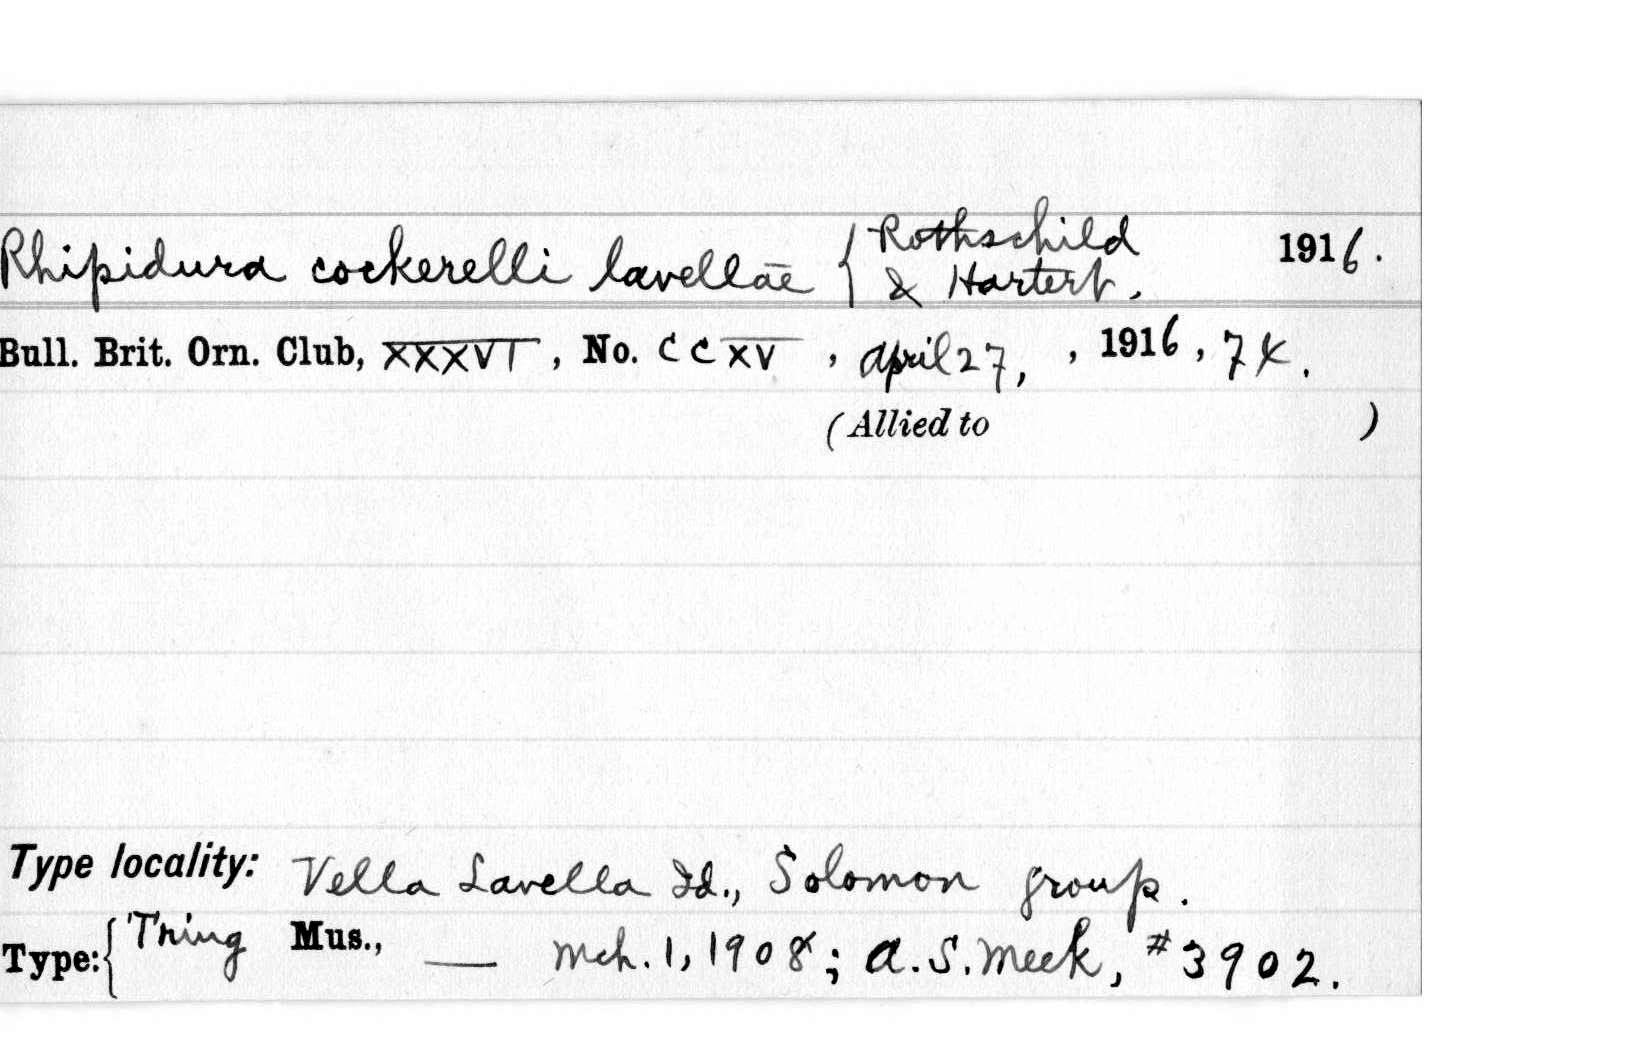 Rhipidura cockerelli lavellae { Rothschild & Hartert. 1916.
Bull. Brit. Orn. Club, XXXVI, No. CCXV, April 27, , 1916, 74.
(Allied to )
Type locality: Vella Lavella Id., Solomon group.
Type: { Tring Mus., — Mch. 1, 1908; A. S. Meek, #3902.